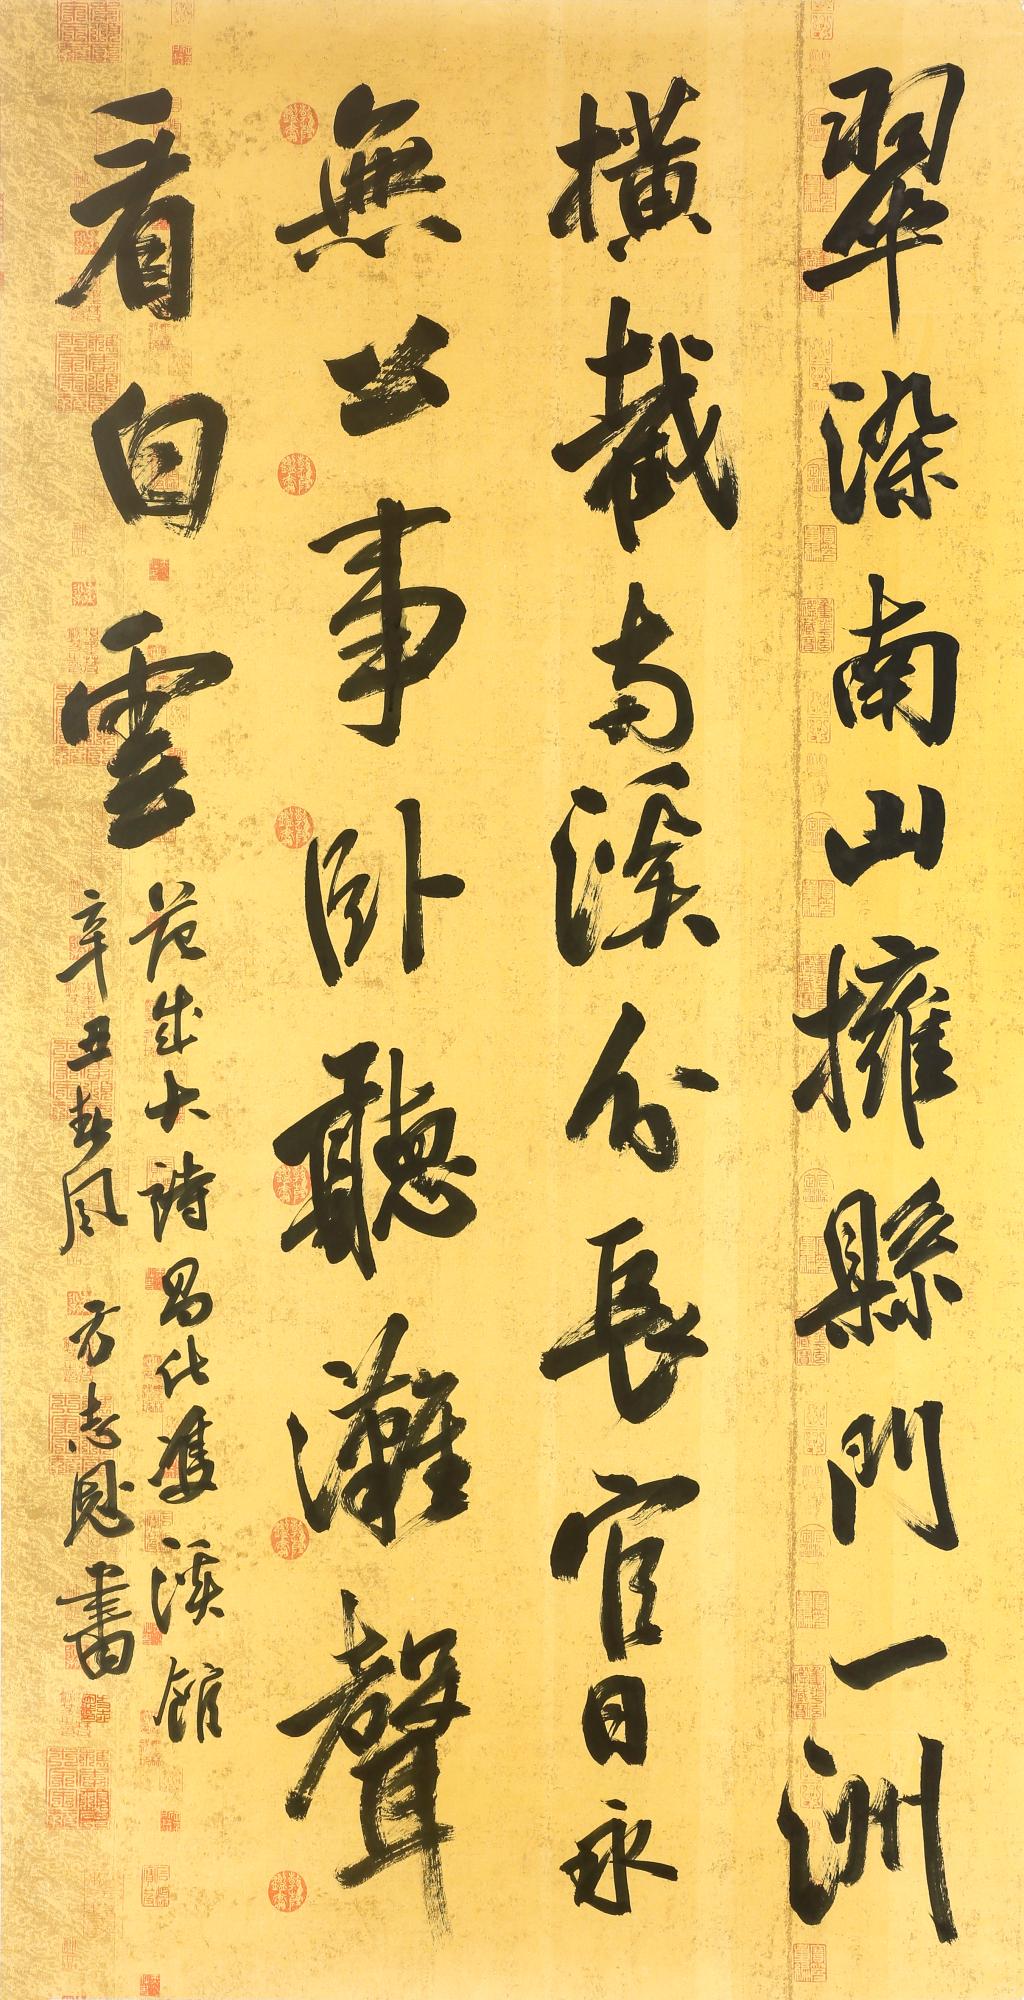 翠染南山擁縣門一洲
橫截南溪分長官日永
無公事卧聽灘聲
看白雲
范成大詩昌化雙溪館
辛丑春風方志恩書